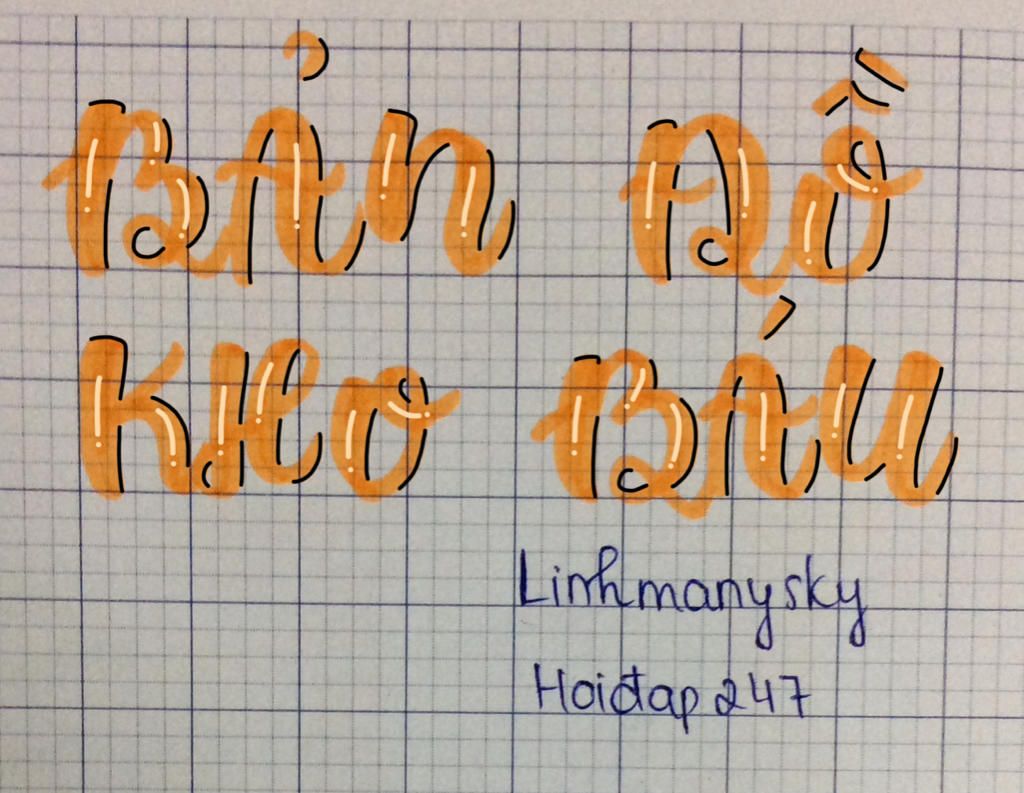 BẢN ĐỒ
KHO BÁU
Linhmanysky
Hoiđap 247